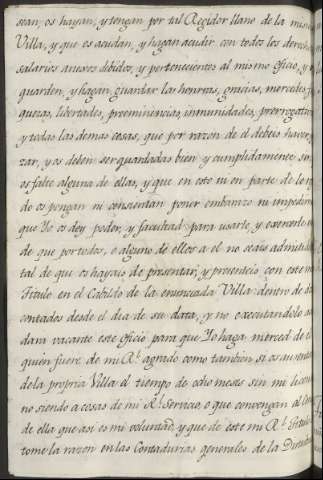 sean, os hayan, y tengan por tal Regidor llano de la misma
Villa, y que os acudan, y hagan acudir con todos los derechos
salarios anexos debidos, y pertenecientes al mismo Oficio, y
guarden, y hagan guardar las honrras, gracias, mercedes,
quezas, libertades, preeminencias, inmunidades, prerrogativ
y todas las demas cosas, que por razon de el debeis haver, y
zar, y os deben ser guardadas bien y cumplidamente sin
os falte alguna de ellas, y que en esto ni en parte de
de os pongan ni consientan poner embarazo ni impedim
que Yo os doy poder, y facultad para usarle, y exercerle
de que por todos, o alguno de ellos a el no seais admitido
tal de que os hayais de presentar, y presenteis con este mi
Titulo en el Cabildo de la enunciada Villa dentro de
contados desde el dia de su data, y no executandolo
dara vacante este Oficio para que Yo haga merced de el
quien fuere de mi R.l agrado como tambien si os ausenta
de la propria Villa el tiempo de ocho meses sin mi licen
no siendo a cosas de mi R.l Servicio, o que convengan al
de ella que asi es mi voluntad, y que de este mi R.l Titulo
tome la razon en las Contadurias generales de la